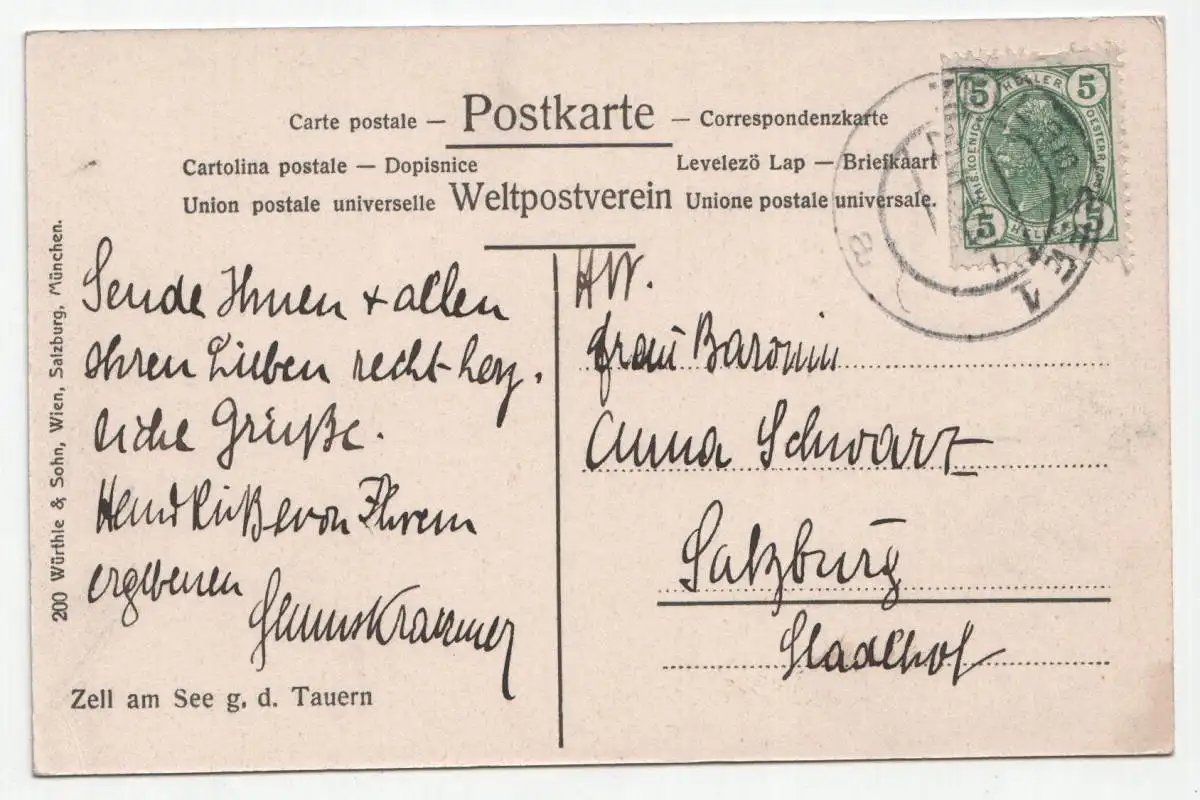 Carte postale — Postkarte — Correspondenzkarte
Cartolina postale — Dopisnice Levelező Lap — Briefkaart
Union postale universelle Weltpostverein Unione postale universale.
5 HELLER 5
KAIS. KOENIGL. OESTERR. POST
5 HELLER 5
Sende Ihnen + allen
Ihren Lieben recht herz.
liche Grüße.
Handküße von Ihrem
ergebenen
HW.
Frau Baronin
Anna Schwarz
Salzburg
200 Würthle & Sohn, Wien, Salzburg, München.
Zell am See g. d. Tauern